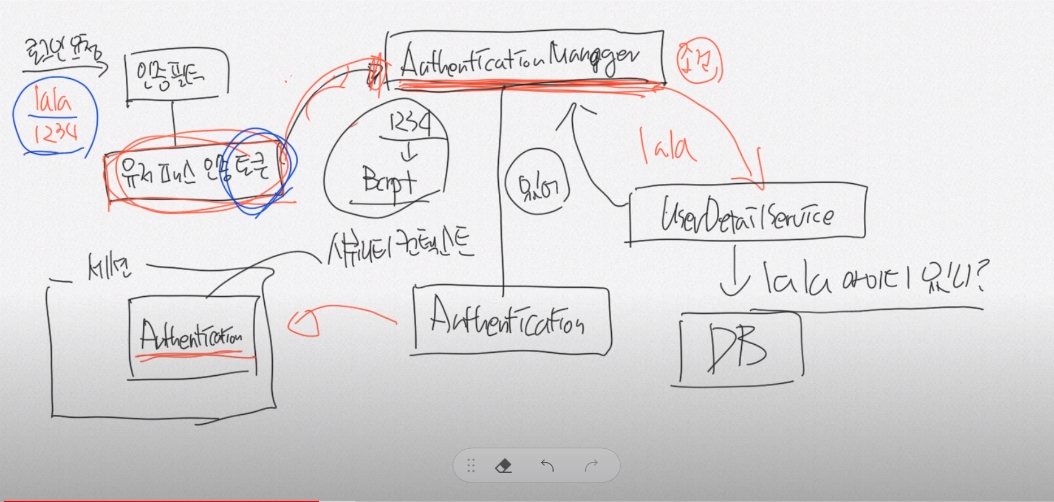 로그인 요청
lala
1234
인증필터
유저 패스 인증 토큰
AuthenticationManager
조건
1234
Bcrpt
있어
lala
UserDetailService
lala 아이디 있니?
DB
세션
시큐리티 컨텍스트
Authentication
Authentication